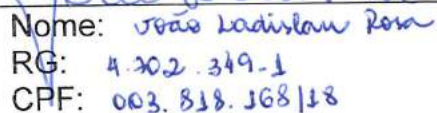 Nome: João Ladislau Rosa
RG: 4.702.349-1
CPF: 003.818.168/18